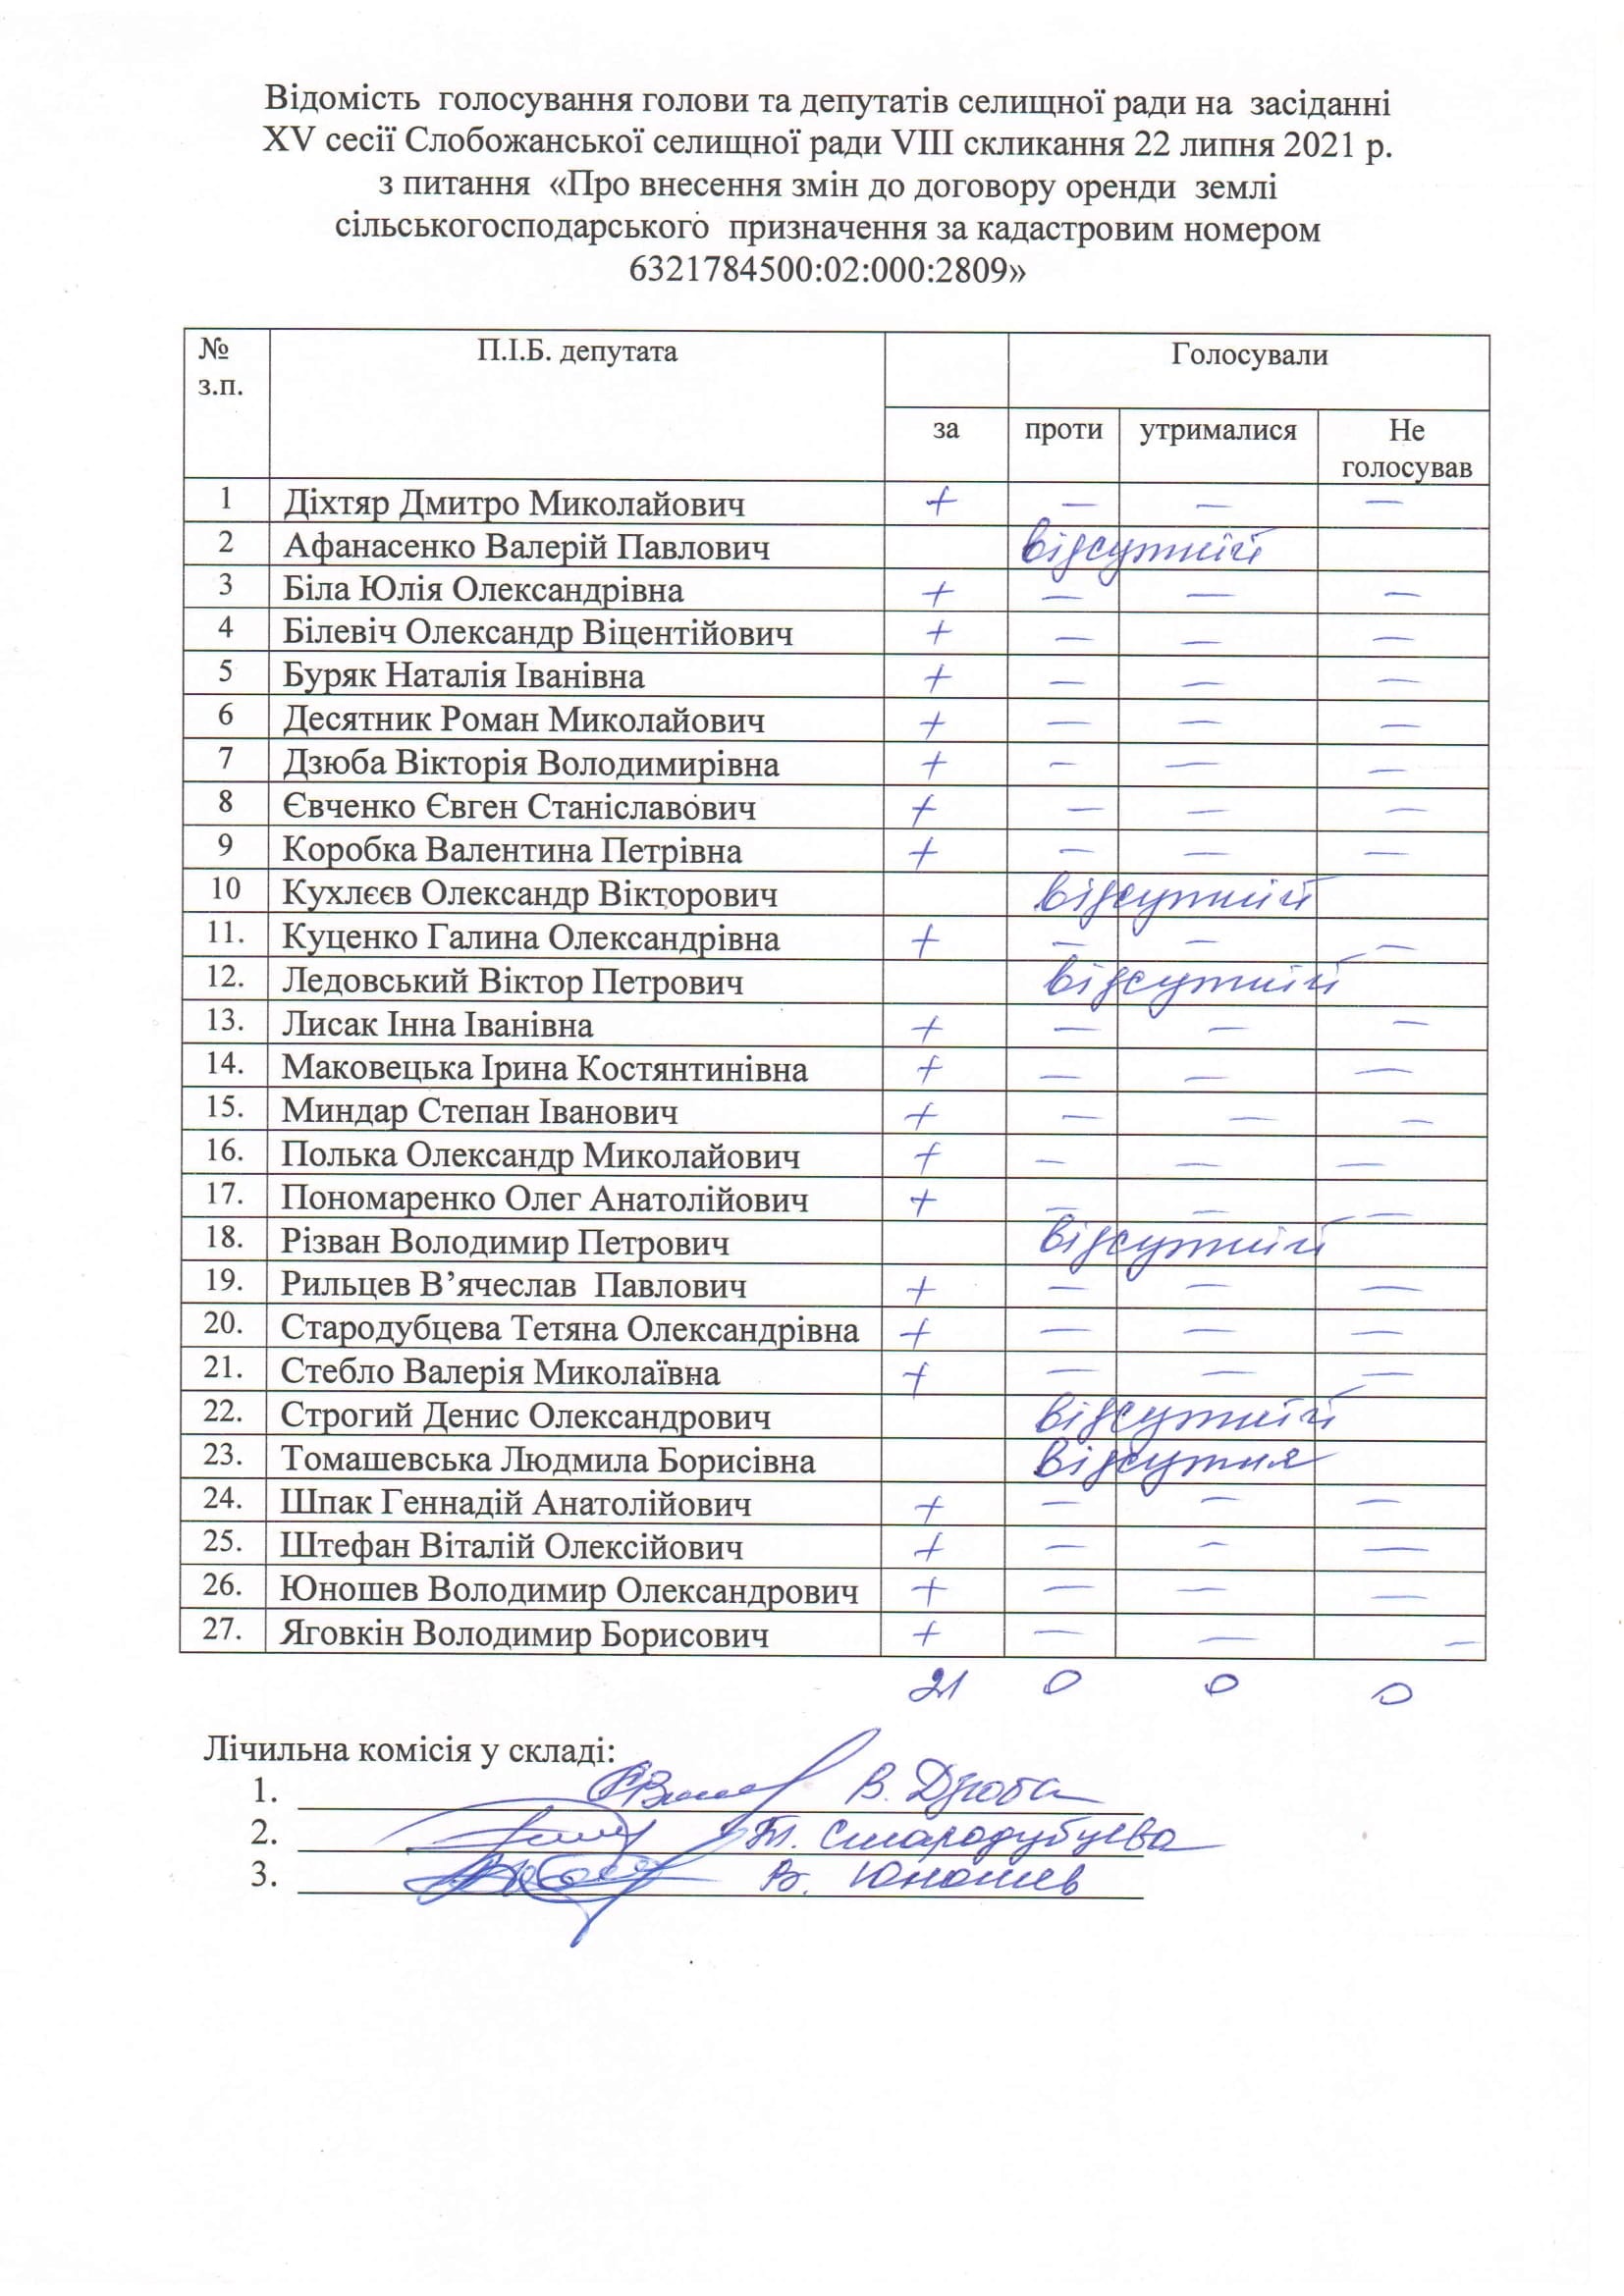 Відомість голосування голови та депутатів селищної ради на засіданні
XV сесії Слобожанської селищної ради VIII скликання 22 липня 2021 р.
з питання «Про внесення змін до договору оренди землі
сільськогосподарського призначення за кадастровим номером
6321784500:02:000:2809»
№ з.п. П.І.Б. депутата Голосували
за проти утрималися Не голосував
1 Діхтяр Дмитро Миколайович + — — —
2 Афанасенко Валерій Павлович відсутній
3 Біла Юлія Олександрівна + — — —
4 Білевіч Олександр Віцентійович + — — —
5 Буряк Наталія Іванівна + — — —
6 Десятник Роман Миколайович + — — —
7 Дзюба Вікторія Володимирівна + — — —
8 Євченко Євген Станіславович + — — —
9 Коробка Валентина Петрівна + — — —
10 Кухлєєв Олександр Вікторович відсутній
11. Куценко Галина Олександрівна + — — —
12. Ледовський Віктор Петрович відсутній
13. Лисак Інна Іванівна + — — —
14. Маковецька Ірина Костянтинівна + — — —
15. Миндар Степан Іванович + — — —
16. Полька Олександр Миколайович + — — —
17. Пономаренко Олег Анатолійович + — — —
18. Різван Володимир Петрович відсутній
19. Рильцев В’ячеслав Павлович + — — —
20. Стародубцева Тетяна Олександрівна + — — —
21. Стебло Валерія Миколаївна + — — —
22. Строгий Денис Олександрович відсутній
23. Томашевська Людмила Борисівна Відсутня
24. Шпак Геннадій Анатолійович + — — —
25. Штефан Віталій Олексійович + — — —
26. Юношев Володимир Олександрович + — — —
27. Яговкін Володимир Борисович + — — —
21 0 0 0
Лічильна комісія у складі:
1. В. Дзюба
2. Т. Стародубцева
3. В. Юношев